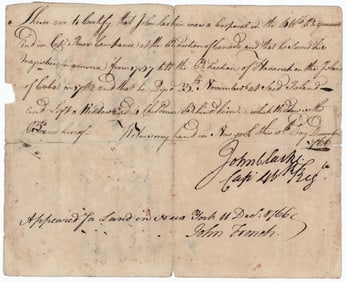 These are to Certify that John Larkin was a Corporal in the 46th Regiment
and in Capt. Company at the Reduction of Canada and that he Served his
Majesty in america from 1757 till the Reduction of Havanah on the Island
of Cuba in 1762 and that he Dep't 25th November at Said Island
and Left a Widow and Children Behind him which Widow is the
Bearer hereof Witness my hand in New york this Day December
1766
John Clarke
Capt 46th Reg
Appeared for Land in New York 11 Dec. 1766
John French